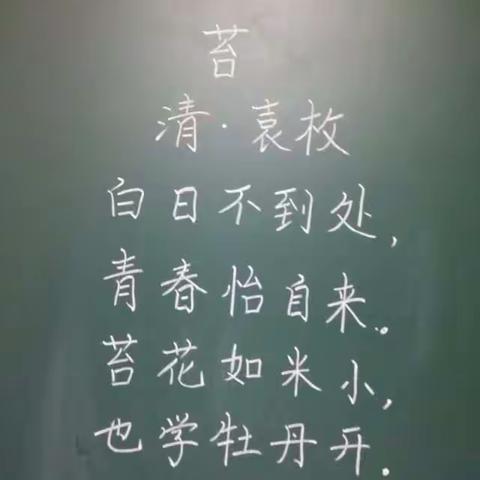 苔
清·袁枚
白日不到处,
青春怡自来。
苔花如米小,
也学牡丹开.